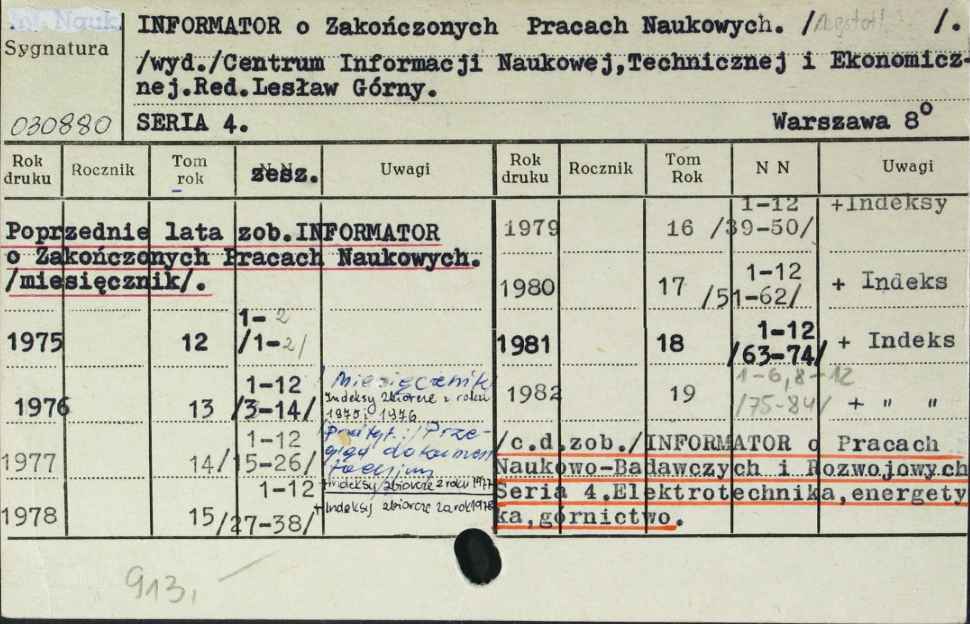 Inf. Nauk.
INFORMATOR o Zakończonych Pracach Naukowych. / /.
Sygnatura
/wyd./Centrum Informacji Naukowej,Technicznej i Ekonomicz-
nej.Red.Lesław Górny.
030880
SERIA 4. Warszawa 8°
Rok druku Rocznik Tom rok zesz. Uwagi
Poprzednie lata zob.INFORMATOR
o Zakończonych Pracach Naukowych.
/miesięcznik/.
1975 12 1-2 /1-2/
1976 13 1-12 /3-14/ Miesięcznik
Indeksy zbiorcze z roku
1975 i 1976
1977 14 1-12 /15-26/ Prze-
gląd dokumen
tacyjny
+Indeksy zbiorcze z roku 1977
1978 15 1-12 /27-38/ + Indeksy zbiorcze za rok 1978
Rok druku Rocznik Tom Rok N N Uwagi
1979 16 1-12 /39-50/ +Indeksy
1980 17 1-12 /51-62/ + Indeks
1981 18 1-12 /63-74/ + Indeks
1982 19 1-6,8-12 /75-84/ + " "
/c.d.zob./INFORMATOR o Pracach
Naukowo-Badawczych i Rozwojowych
Seria 4.Elektrotechnika,energety
ka,górnictwo.
913,